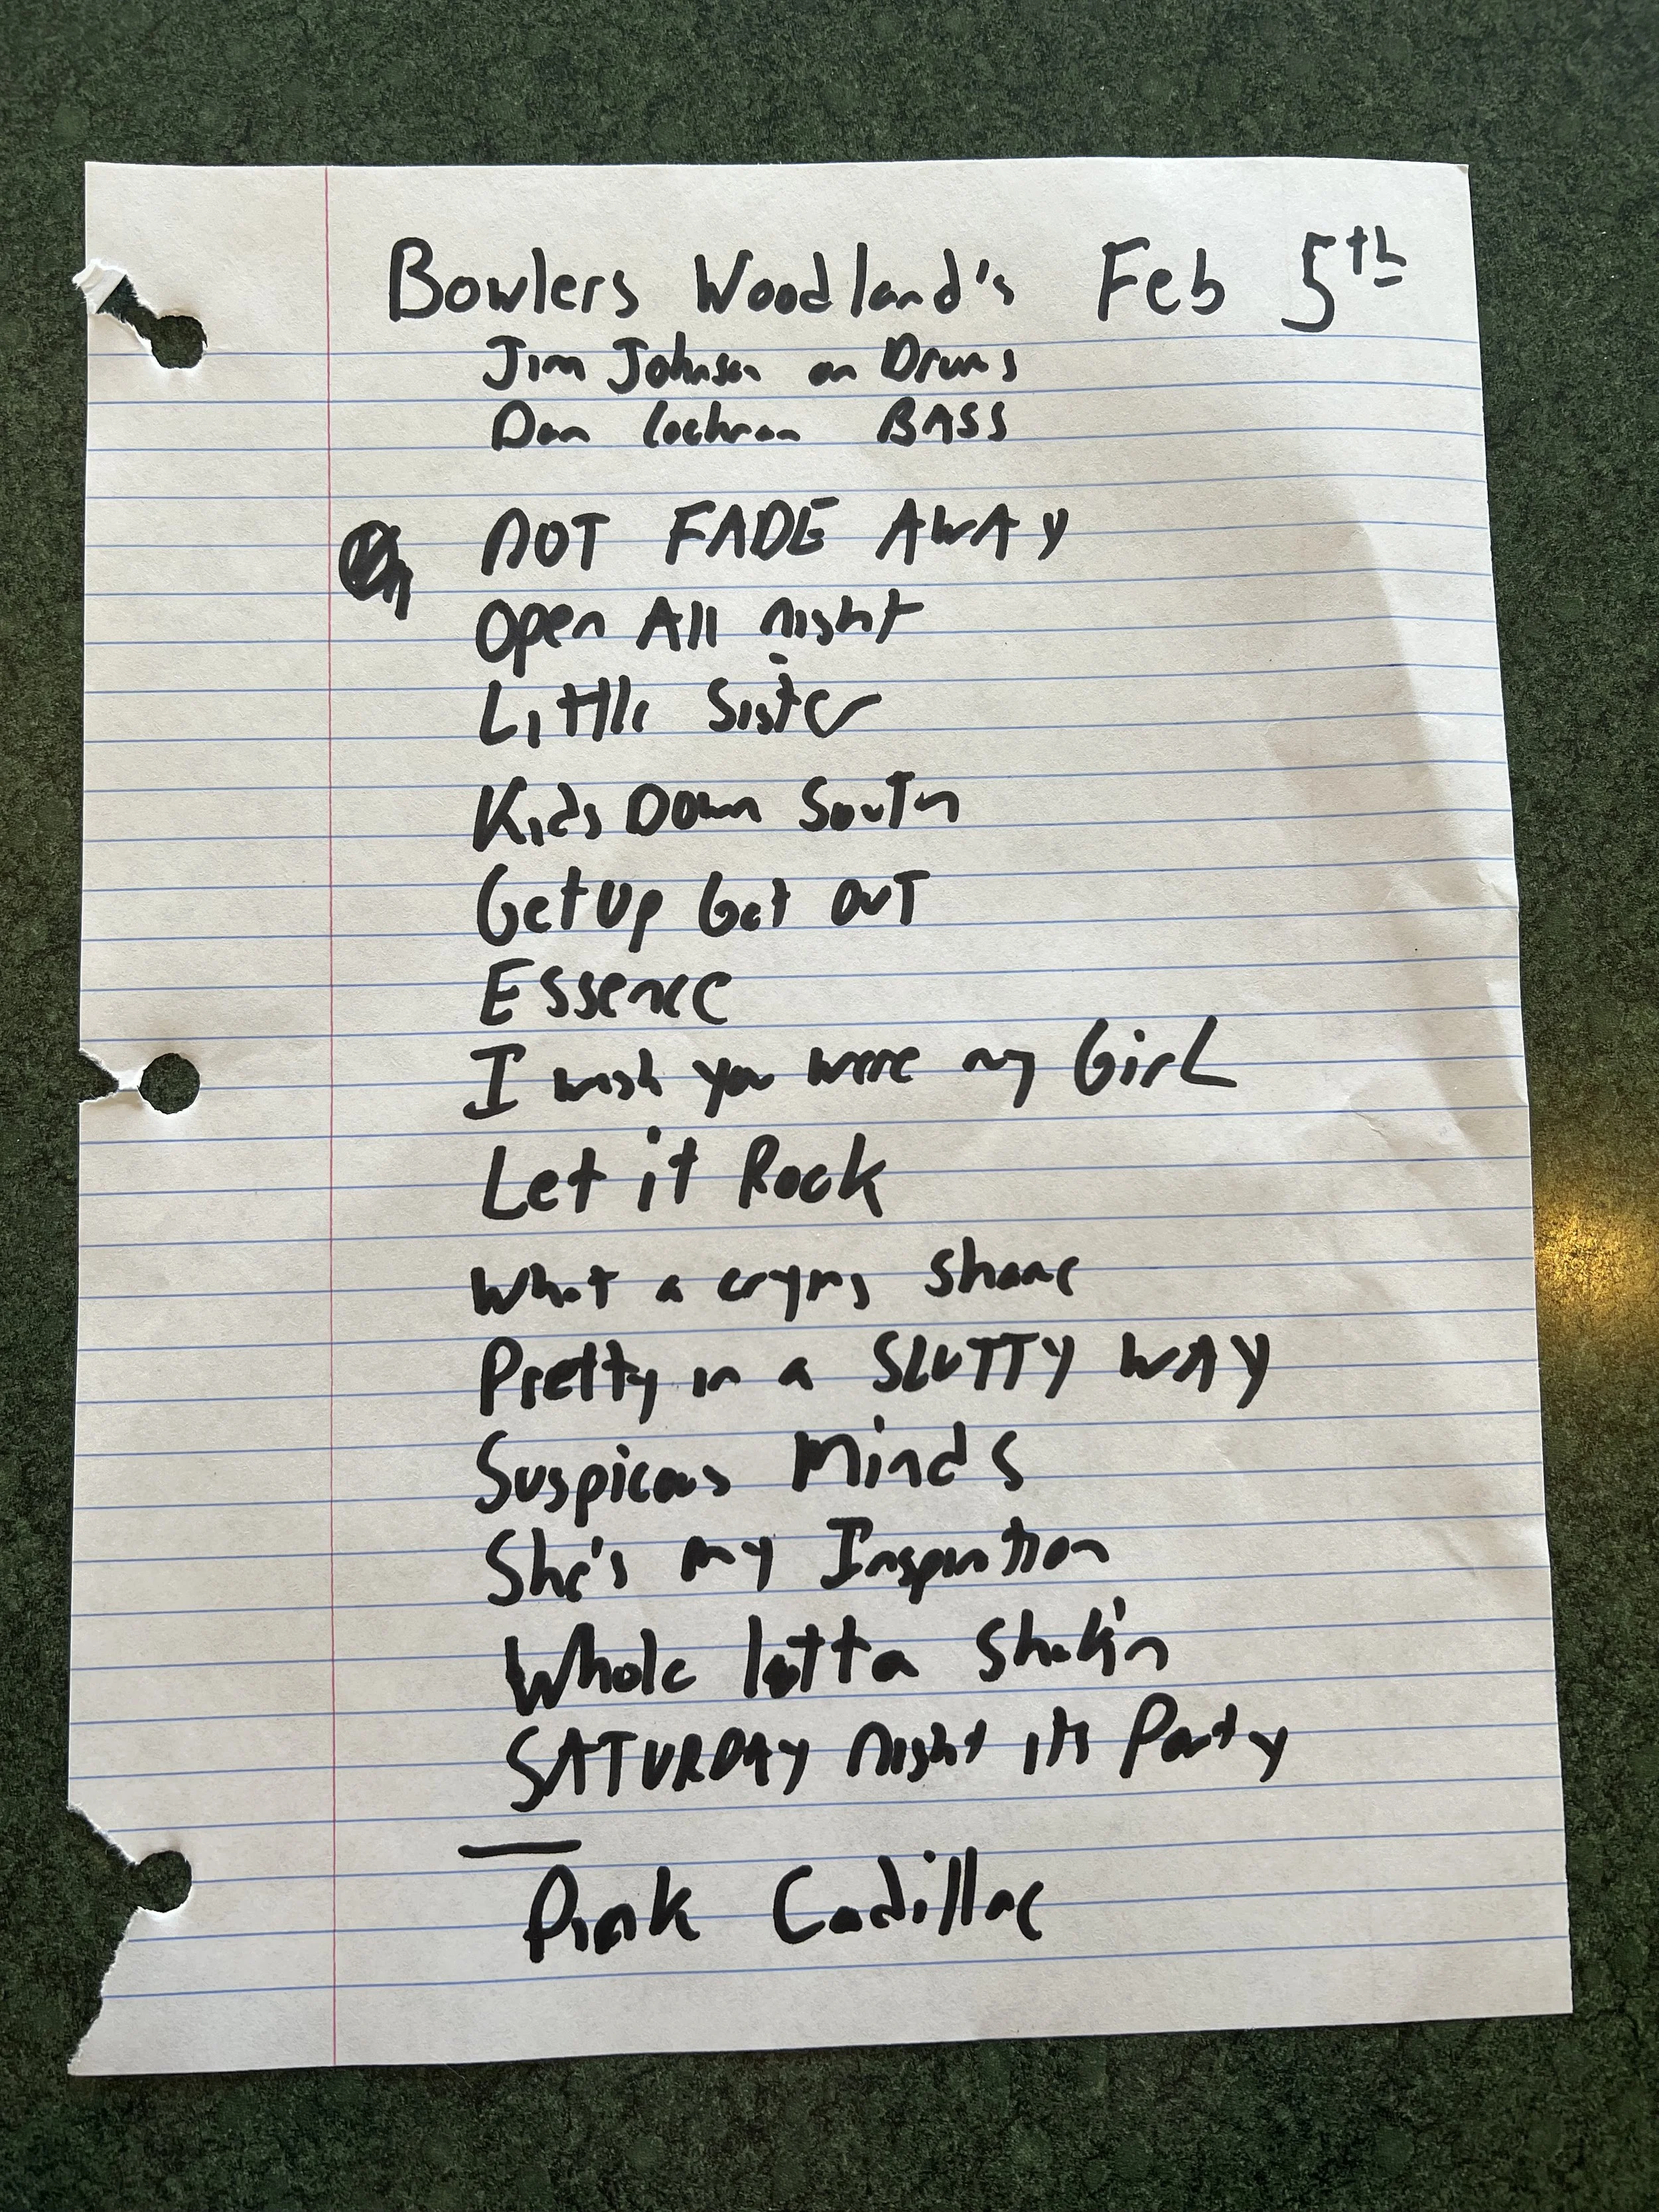 Bowlers Woodland's Feb 5th
Jim Johnson on Drums
Dan Cochran BASS
NOT FADE AWAY
Open All night
Little Sister
Kids Down South
Get Up Get OUT
Essence
I wish you were my Girl
Let it Rock
What a crying Shame
Pretty in a SLUTTY WAY
Suspicous Minds
She's my Inspiration
Whole lotta Shak'n
SATURDAY Night its Party
Pink Cadillac